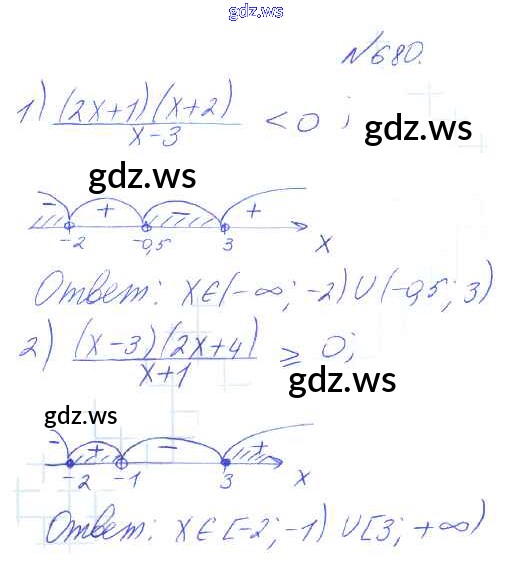 gdz.ws
№680.
1) (2x+1)(x+2) / x-3 < 0 ;
gdz.ws
gdz.ws
- + - +
-2 -0,5 3 x
Ответ: x∈(-∞; -2)∪(-0,5; 3)
2) (x-3)(2x+4) / x+1 ≥ 0;
gdz.ws
gdz.ws
- + - +
-2 -1 3 x
Ответ: x∈[-2; -1)∪[3; +∞)